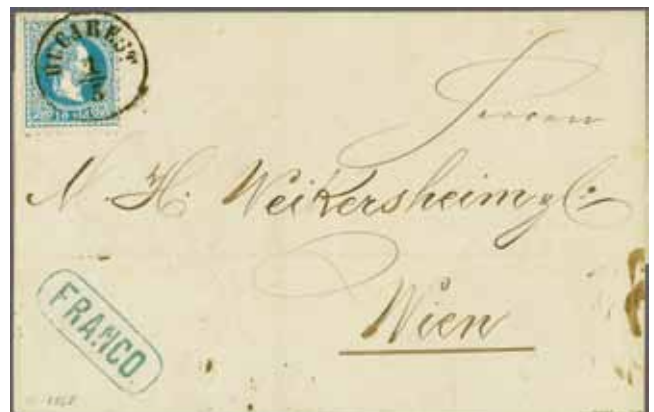 BUCAREST
1
5
Herren
M. H. Weikersheim & Co.
Wien
FRANCO